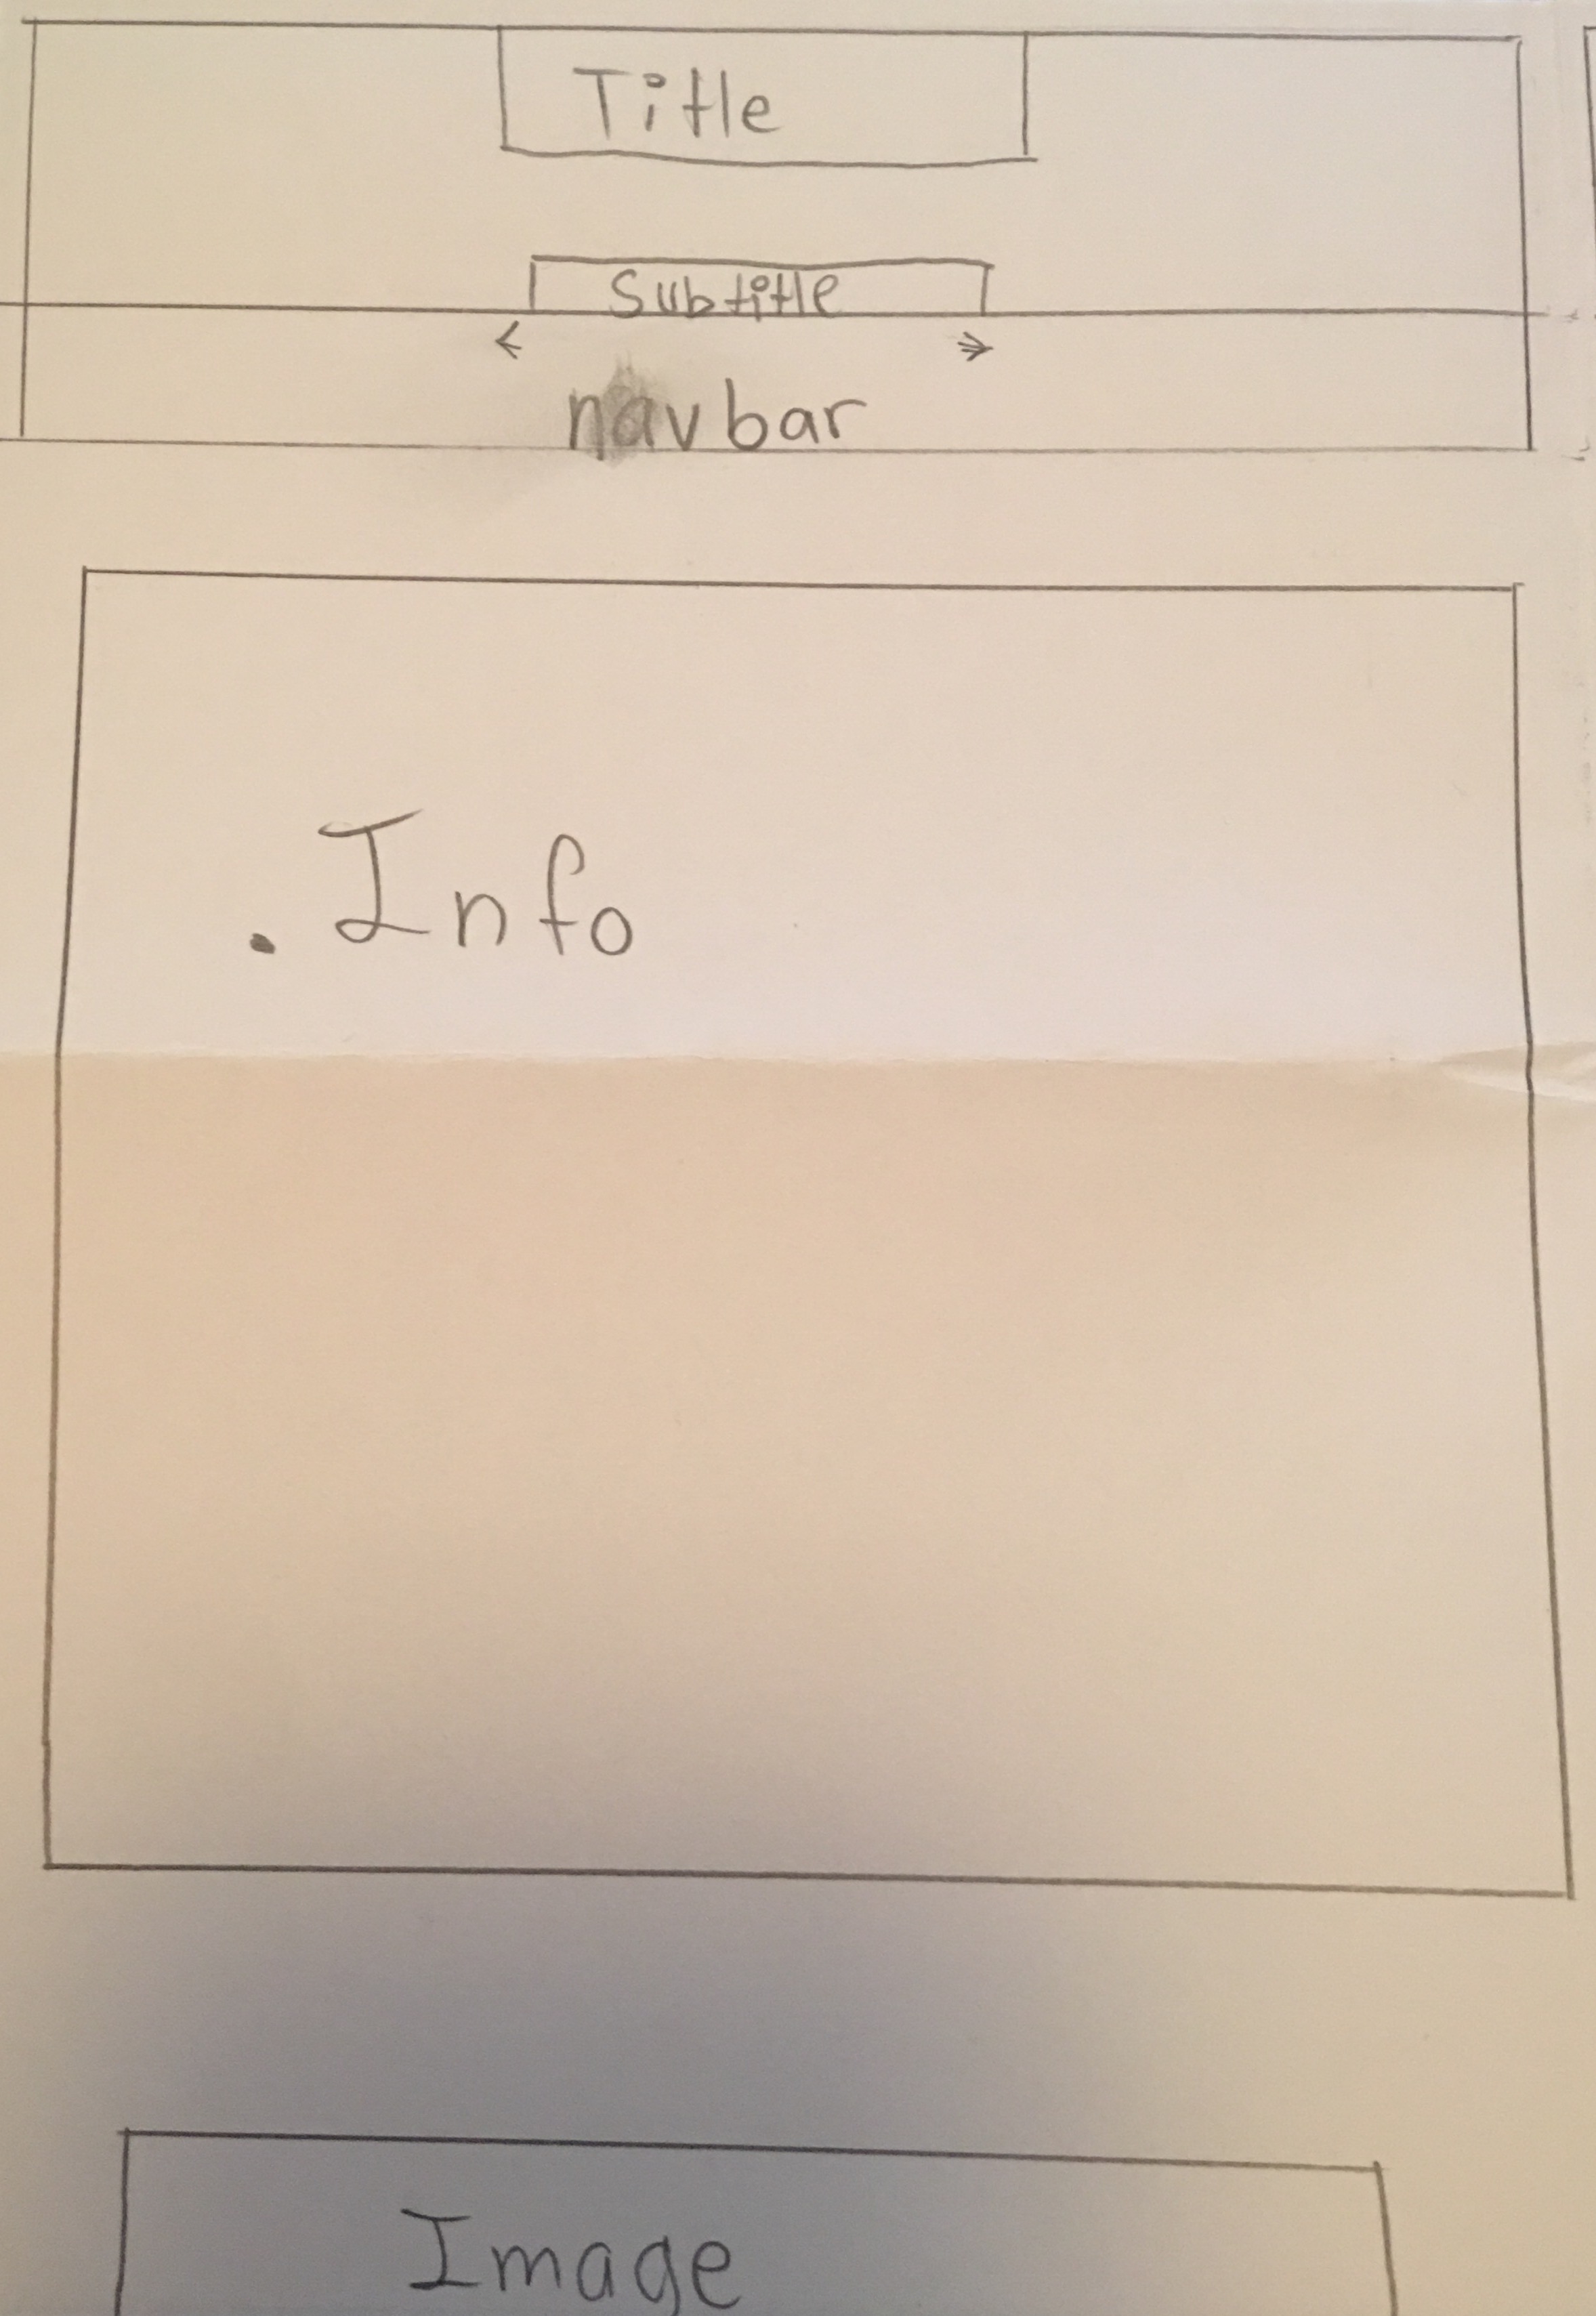 Title
Subtitle
navbar
. Info
Image